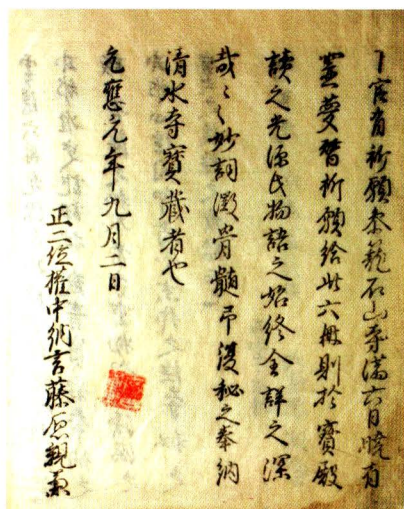 下官有祈願参籠石山寺満六日暁有
霊夢祈願給此六冊則於寶殿
讀之光源氏物語之始終全詳之深
哉〻〻妙詞徹骨髄秘之奉納
清水寺寶蔵者也
元應元年九月二日
正二位権中納言藤原親兼